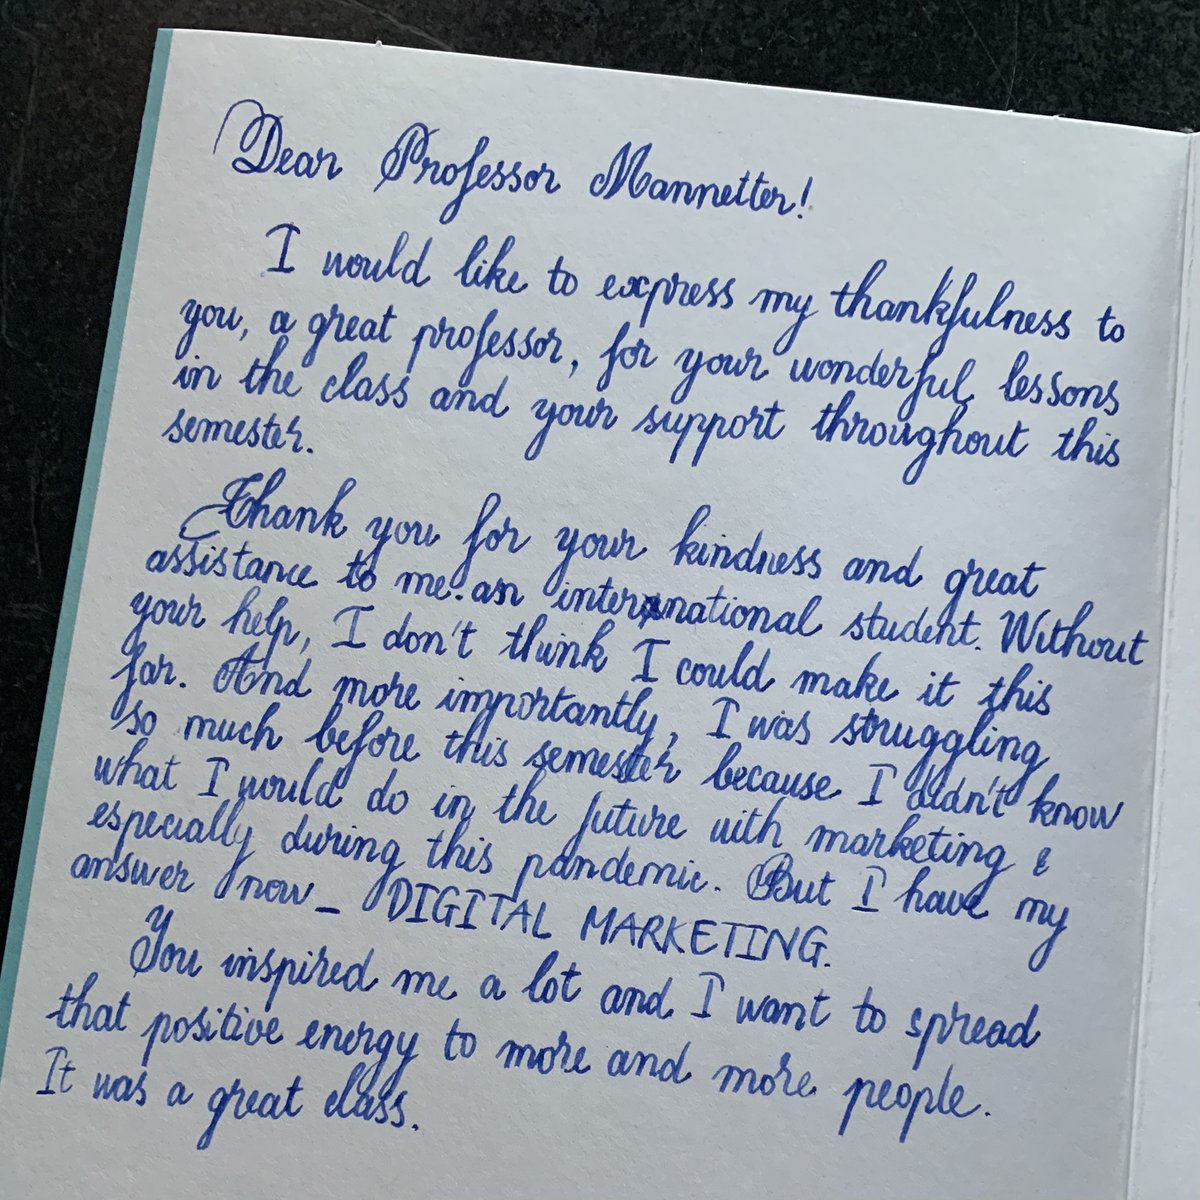 Dear Professor Mannetter!
I would like to express my thankfulness to
you, a great professor, for your wonderful lessons
in the class and your support throughout this
semester.
Thank you for your kindness and great
assistance to me.an international student. Without
your help, I don't think I could make it this
far. And more importantly, I was struggling
so much before this semester because I didn't know
what I would do in the future with marketing &
especially during this pandemic. But I have my
answer now_ DIGITAL MARKETING.
You inspired me a lot and I want to spread
that positive energy to more and more people.
It was a great class.